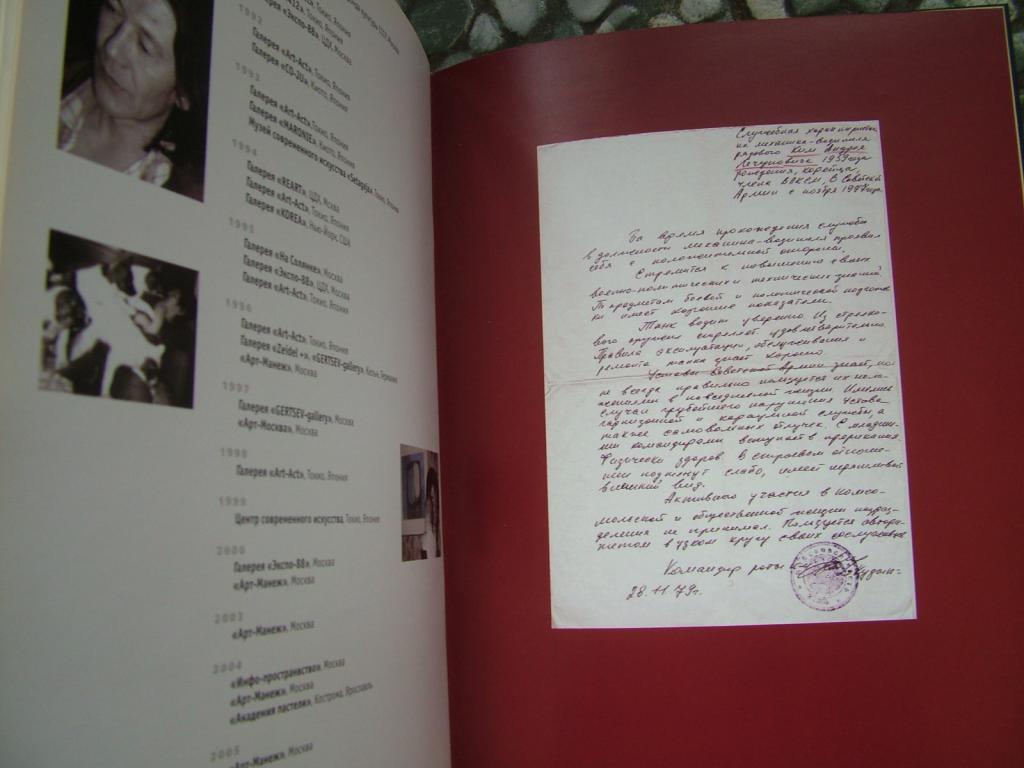 1992
Галерея «Экспо-88», ЦДХ, Москва
Галерея «Art-Act», Токио, Япония
Галерея «CO-JU», Киото, Япония
1993
Галерея «Art-Act», Токио, Япония
Галерея «MARONIE», Киото, Япония
Музей современного искусства «Setagaja», Токио, Япония
1994
Галерея «REART», ЦДХ, Москва
Галерея «Art-Act», Токио, Япония
Галерея «KOREA», Нью-Йорк, США
1995
Галерея «На Солянке», Москва
Галерея «Экспо-88», ЦДХ, Москва
Галерея «Art-Act», Токио, Япония
1996
Галерея «Art-Act», Токио, Япония
Галерея «Zeidel +», «GERTSEV-gallery», Кельн, Германия
«Арт-Манеж», Москва
1997
Галерея «GERTSEV-gallery», Москва
«Арт-Москва», Москва
1998
Галерея «Art-Act», Токио, Япония
1999
Центр современного искусства, Токио, Япония
2000
Галерея «Экспо-88», Москва
«Арт-Манеж», Москва
2003
«Арт-Манеж», Москва
2004
«Инфо-пространство», Москва
«Арт-Манеж», Москва
«Академия пастели», Кострома, Ярославль
2005
«Арт-Манеж», Москва
Служебная характеристика
на механика-водителя
рядового Ким Андрея
1959 года
рождения, корейца,
члена ВЛКСМ. В Советской
Армии с ноября 1977 года
За время прохождения службы
в должности механика-водителя проявил
себя с положительной стороны.
Стремится к повышению своих
военно-политических и технических знаний.
По предметам боевой и политической подготов-
ки имеет хорошие показатели.
Танк водит уверенно. Из стрелко-
вого оружия стреляет удовлетворительно.
Правила эксплуатации, обслуживания и
ремонта танка знает хорошо.
Уставы Советской Армии знает, но
не всегда правильно пользуется их поло-
жениями в повседневной жизни. Имелись
случаи грубейшего нарушения Устава
гарнизонной и караульной службы, а
также самовольных отлучек. С младши-
ми командирами вступает в пререкания.
Физически здоров. В строевом отноше-
нии подтянут слабо, имеет неряшливый
внешний вид.
Активного участия в комсо-
мольской и общественной жизни подраз-
деления не принимал. Пользуется автори-
тетом в узком кругу своих сослуживцев
Командир роты
28.11.79г.